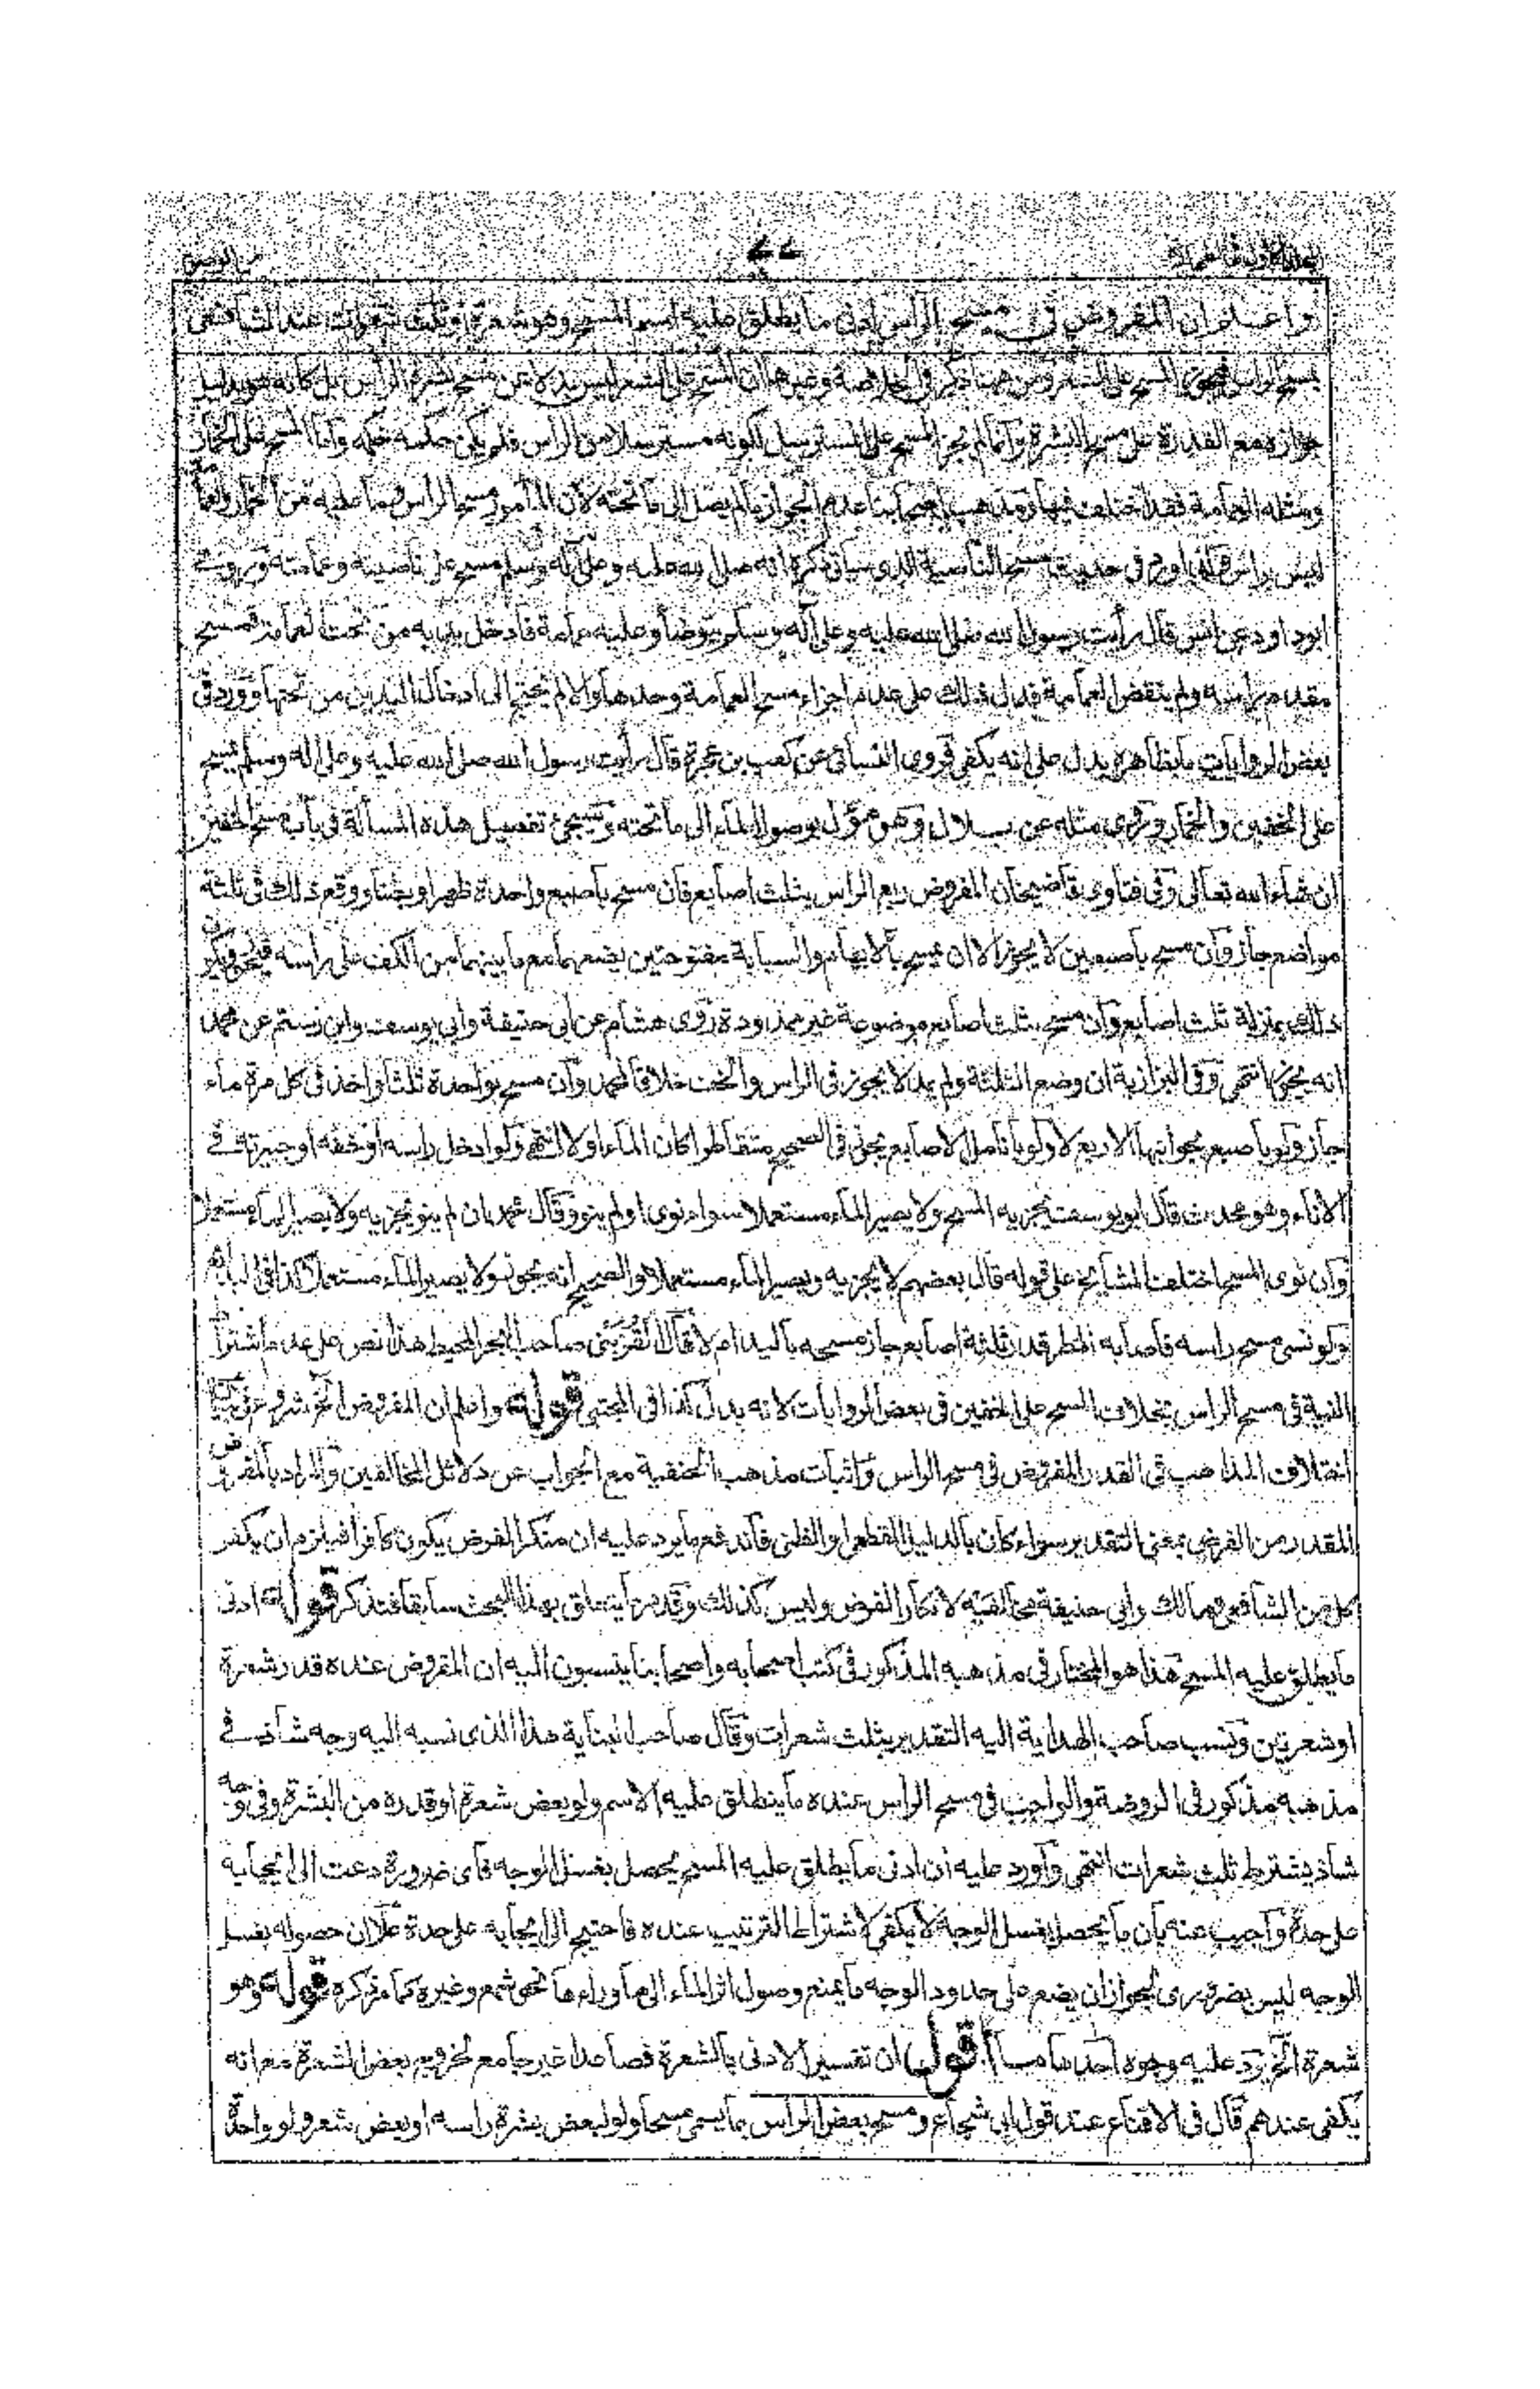 ٧٧
واعلم ان المفروض في مسح الراس ادنى ما يطلق عليه اسم المسح وهو شعرة او ثلث شعرات عند الشافعي
بمسح الراس المسح على الشعر ومن ههنا ذكر في الخلاصة وغيرها ان المسح على الشعر ليس بدلا عن مسح بشرة الراس بل كانه هو بدليل
جوازه مع القدرة على مسح البشرة وانما لم يجز المسح على المسترسل لكونه مسترسلا من الراس فلم يكن حكمه حكمه واما المسح على الخمار
ومثله العمامة فقد اختلف فيها ومذهب اصحابنا عدم الجواز ما لم يصل الى ما تحته لان المأمور مسح الراس وما عليه من الخمار والعمامة
ليس براس وما ورد في حديث مسح الناصية الذي سياتي ذكره انه صلى الله عليه وعلى آله وسلم مسح على ناصيته وعمامته وروى
ابو داود عن انس قال رأيت رسول الله صلى الله عليه وعلى آله وسلم يتوضأ وعليه عمامة فادخل يديه من تحت العمامة فمسح
مقدم راسه ولم ينقض العمامة فدل ذلك على عدم اجزاء مسح العمامة وحدها والا لم يحتج الى ادخال اليدين من تحتها وورد في
بعض الروايات ما بظاهره يدل على انه يكفي فروى النسائي عن كعب بن عجرة قال رأيت رسول الله صلى الله عليه وعلى آله وسلم يمسح
على الخفين والخمار وروى مثله عن بلال وهو مؤول بوصول الماء الى ما تحته وسيجئ تفصيل هذه المسألة في باب مسح الخفين
ان شاء الله تعالى وفي فتاوى قاضيخان المفروض ربع الراس بثلث اصابع فان مسح باصبع واحدة ظهرا وبطنا ووقع ذلك في ثلثة
مواضع جاز وان مسح باصبعين لا يجوز الا ان يمسح بالابهام والسبابة مفتوحتين يضعهما مع ما بينهما من الكف على راسه فيكون
ذلك بمنزلة ثلث اصابع وان مسح بثلث اصابع موضوعة غير ممدودة روى هشام عن ابي حنيفة وابي يوسف وابن رستم عن محمد
انه يجوز انتهى وفي البزازية ان وضع الثلثة ولم يمد لا يجوز في الراس والخف خلافا لمحمد وان مسح بواحدة ثلثا واخذ في كل مرة ماء
جاز ولو باصبع بجوانبها الاربع لا ولو بانامل الاصابع يجوز في الصحيح متقاطرا كان الماء او لا انتهى ولو ادخل راسه او خفه او جبيرته في
الاناء وهو محدث قال ابو يوسف يجزيه المسح ولا يصير الماء مستعملا سواء نوى او لم ينو وقال محمد ان لم ينو يجزيه ولا يصير الماء مستعملا
وان نوى المسح اختلف المشايخ على قوله قال بعضهم لا يجزيه ويصير الماء مستعملا والصحيح انه يجوز ولا يصير الماء مستعملا كذا في البدائع
ولو نسى مسح راسه فاصابه المطر قدر ثلثة اصابع جاز مسحه باليد ام لا قال القزبني صاحب البحر المحيط هذا نص على عدم اشتراط
النية في مسح الراس بخلاف المسح على الخفين في بعض الروايات لانه بدل كذا في المجتبى قوله واعلم ان المفروض الخ شروع في بيان
اختلاف المذاهب في القدر المفروض في مسح الراس واثبات مذهب الحنفية مع الجواب عن دلائل المخالفين والمراد بالمفروض
المقدر من الفرض بمعنى التقدير سواء كان بالدليل القطعي او الظني فاندفع ما يرد عليه ان منكر الفرض يكون كافرا فيلزم ان يكفر
كل من الشافعي ومالك وابي حنيفة مخالفيه لانكار الفرض وليس كذلك وقد مر ما يتعلق بهذا البحث سابقا فتذكر قوله ادنى
ما يطلق عليه المسح هذا هو المختار في مذهبه المذكور في كتب اصحابه واصحابنا ينسبون اليه ان المفروض عنده قدر شعرة
او شعرتين ونسب صاحب الهداية اليه التقدير بثلث شعرات وقال صاحب البناية هذا الذي نسبه اليه وجه شاذ في
مذهبه مذكور في الروضة والواجب في مسح الراس عنده ما ينطلق عليه الاسم ولو بعض شعرة او قدره من البشرة وفي وجه
شاذ يشترط ثلث شعرات انتهى واورد عليه ان ادنى ما يطلق عليه المسح يحصل بغسل الوجه فاي ضرورة دعت الى ايجابه
على حدة واجيب عنه بان ما يحصل بغسل الوجه لا يكفي لاشتراط الترتيب عنده فاحتيج الى ايجابه على حدة علا ان حصوله بغسل
الوجه ليس بضروري لجواز ان يضع على حدود الوجه ما يمنع وصول اثر الماء الى ما وراءها نحو شمع وغيره كما مر ذكره قوله وهو
شعرة الخ يرد عليه وجوه احدها ما اقول ان تفسير الادنى بالشعرة فصاعدا غير جامع لخروج بعض الشعرة مع انه
يكفي عندهم قال في الاقناع عند قول ابي شجاع ومسح بعض الراس بما يسمى مسحا ولو لبعض بشرة راسه او بعض شعر ولو واحدة